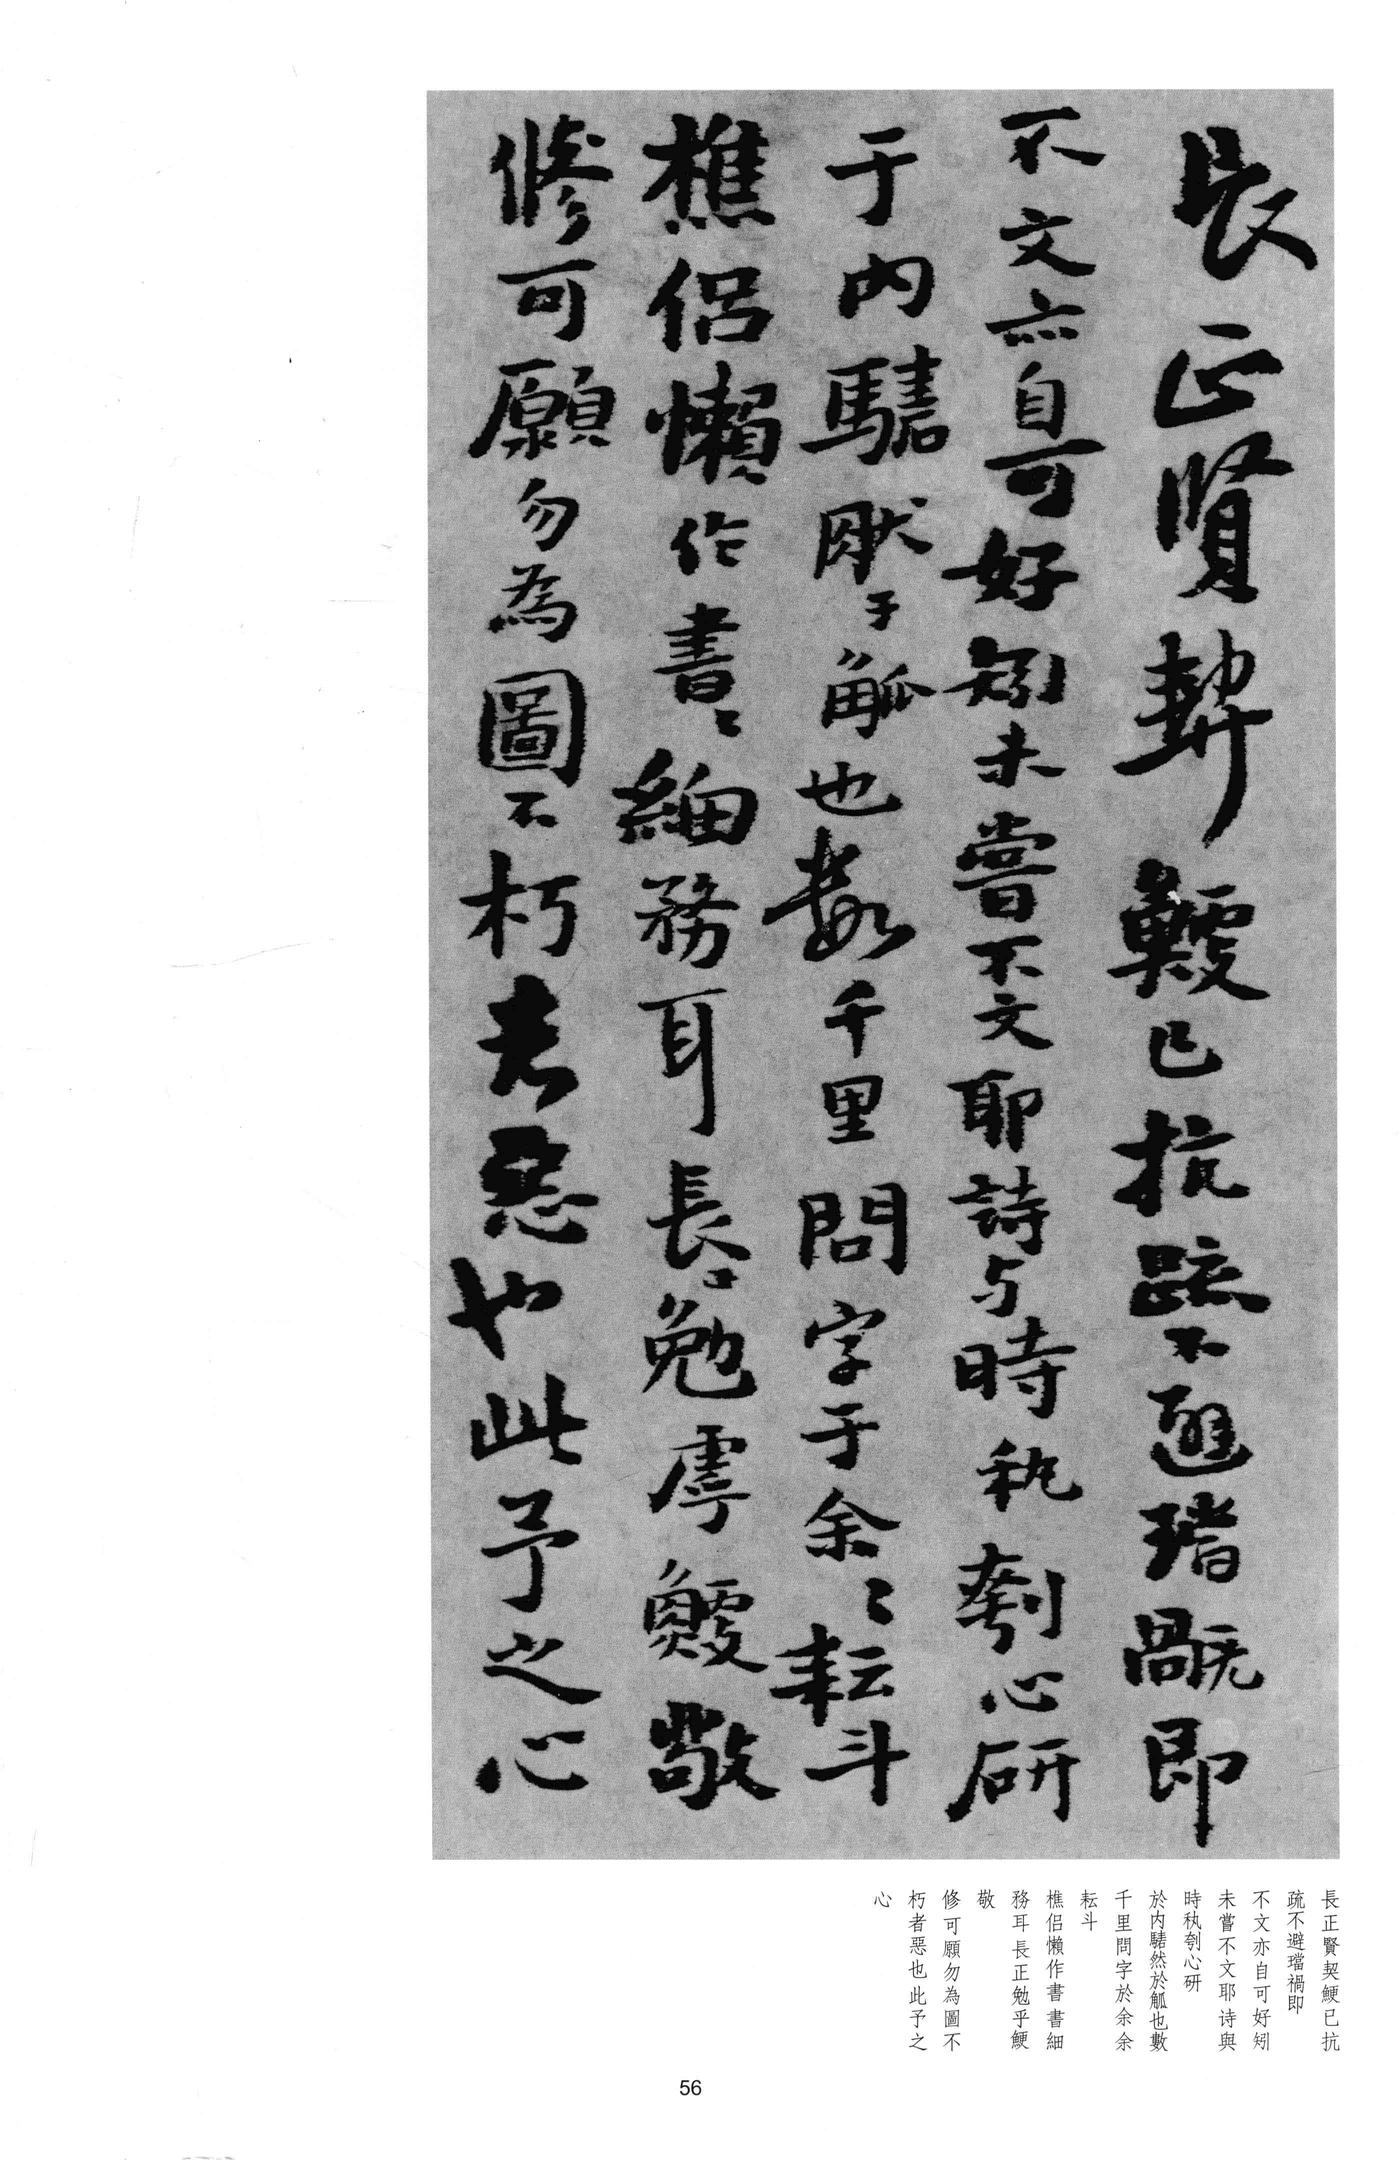 長正賢契鯁已抗疏不避璫禍即
不文亦自可好矧未嘗不文耶詩与時秇刳心研
于内驣肰于觚也數千里問字于余〻耘斗
樵侣懶作書〻細務耳長正勉虖鯁敬
修可願勿為圖不朽者惡也此予之心
長正賢契鯁已抗
疏不避璫禍即
不文亦自可好矧
未嘗不文耶诗與
時秇刳心研
於内驣然於觚也數
千里問字於余余
耘斗
樵侣懶作書書細
務耳長正勉乎鯁
敬
修可願勿為圖不
朽者惡也此予之
心
56